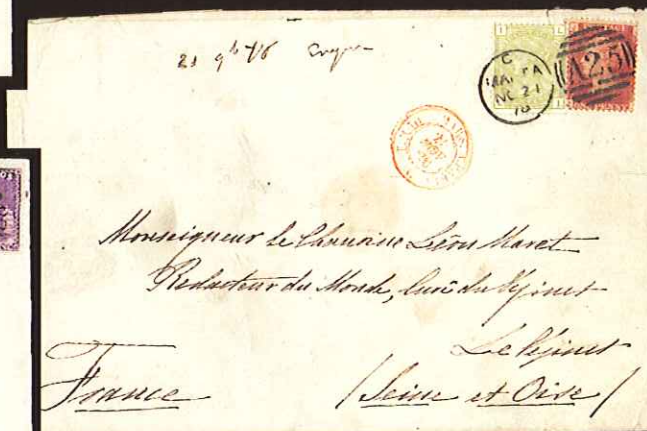 21 9b 76
C
MALTA
NO 21
76
A25
Monseigneur le Chanoine Léon Maret
Redacteur du Monde, Curé du Vésinet
Le Vésinet
France
(Seine et Oise)